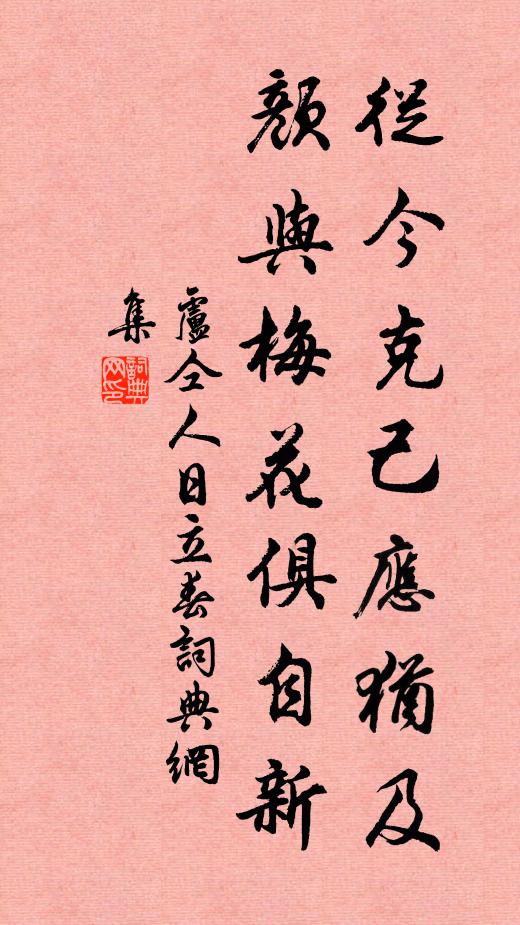 從今克己應猶及
顏與梅花俱自新
盧仝人日立春詞典網
集
詞典网印